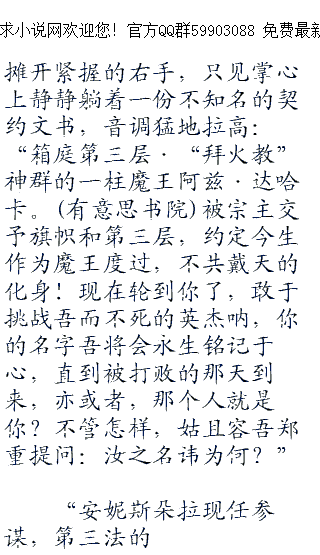 求小说网欢迎您！官方QQ群59903088 免费最新
摊开紧握的右手，只见掌心
上静静躺着一份不知名的契
约文书，音调猛地拉高：
“箱庭第三层·“拜火教”
神群的一柱魔王阿兹·达哈
卡。(有意思书院)被宗主交
予旗帜和第三层，约定今生
作为魔王度过，不共戴天的
化身！现在轮到你了，敢于
挑战吾而不死的英杰呐，你
的名字吾将会永生铭记于
心，直到被打败的那天到
来，亦或者，那个人就是
你？不管怎样，姑且容吾郑
重提问：汝之名讳为何？”
“安妮斯朵拉现任参
谋，第三法的